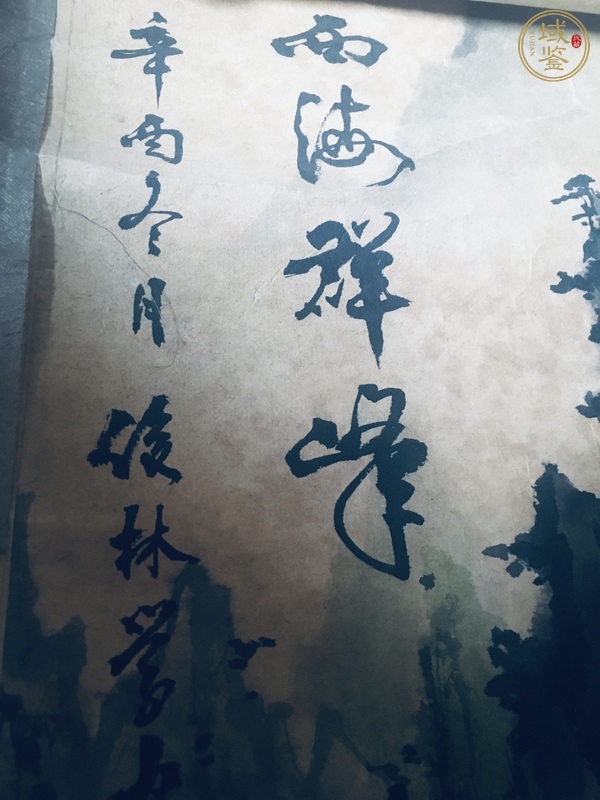 西海群峰
辛酉冬月 俊林学
域鉴